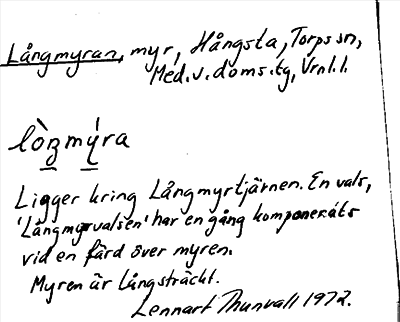 Långmyran, myr, Hångsta, Torps sn,
Med. v. doms. tg, Vrnl. l.
lòŋmýra
Ligger kring Långmyrtjärnen. En vals,
'Långmyrvalsen' har en gång komponerats
vid en färd över myren.
Myren är långsträckt.
Lennart Thunvall 1972.